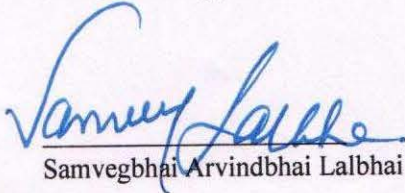 Samveg Lalbhai
Samvegbhai Arvindbhai Lalbhai